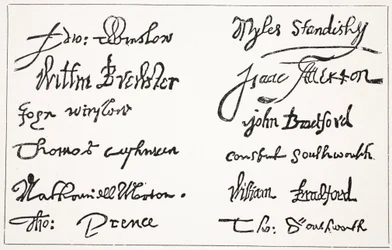 Edw: Winslow
Willm Brewster
John winslow
Thomas cushman
Nathaniell Morton.
Tho: Prence
Myles Standish
Isaac Allerton
John Bradford
Constant Southworth
William Bradford
Tho: Southworth